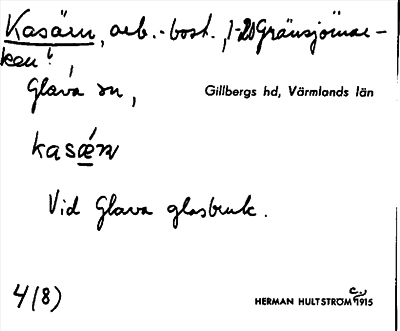 Kasärn, arb.-bost., 1-20 Gränsjömar-
ken!
Glava sn, Gillbergs hd, Värmlands län
kasǽrn
Vid Glava glasbruk.
4(8) HERMAN HULTSTRÖM c. 1915